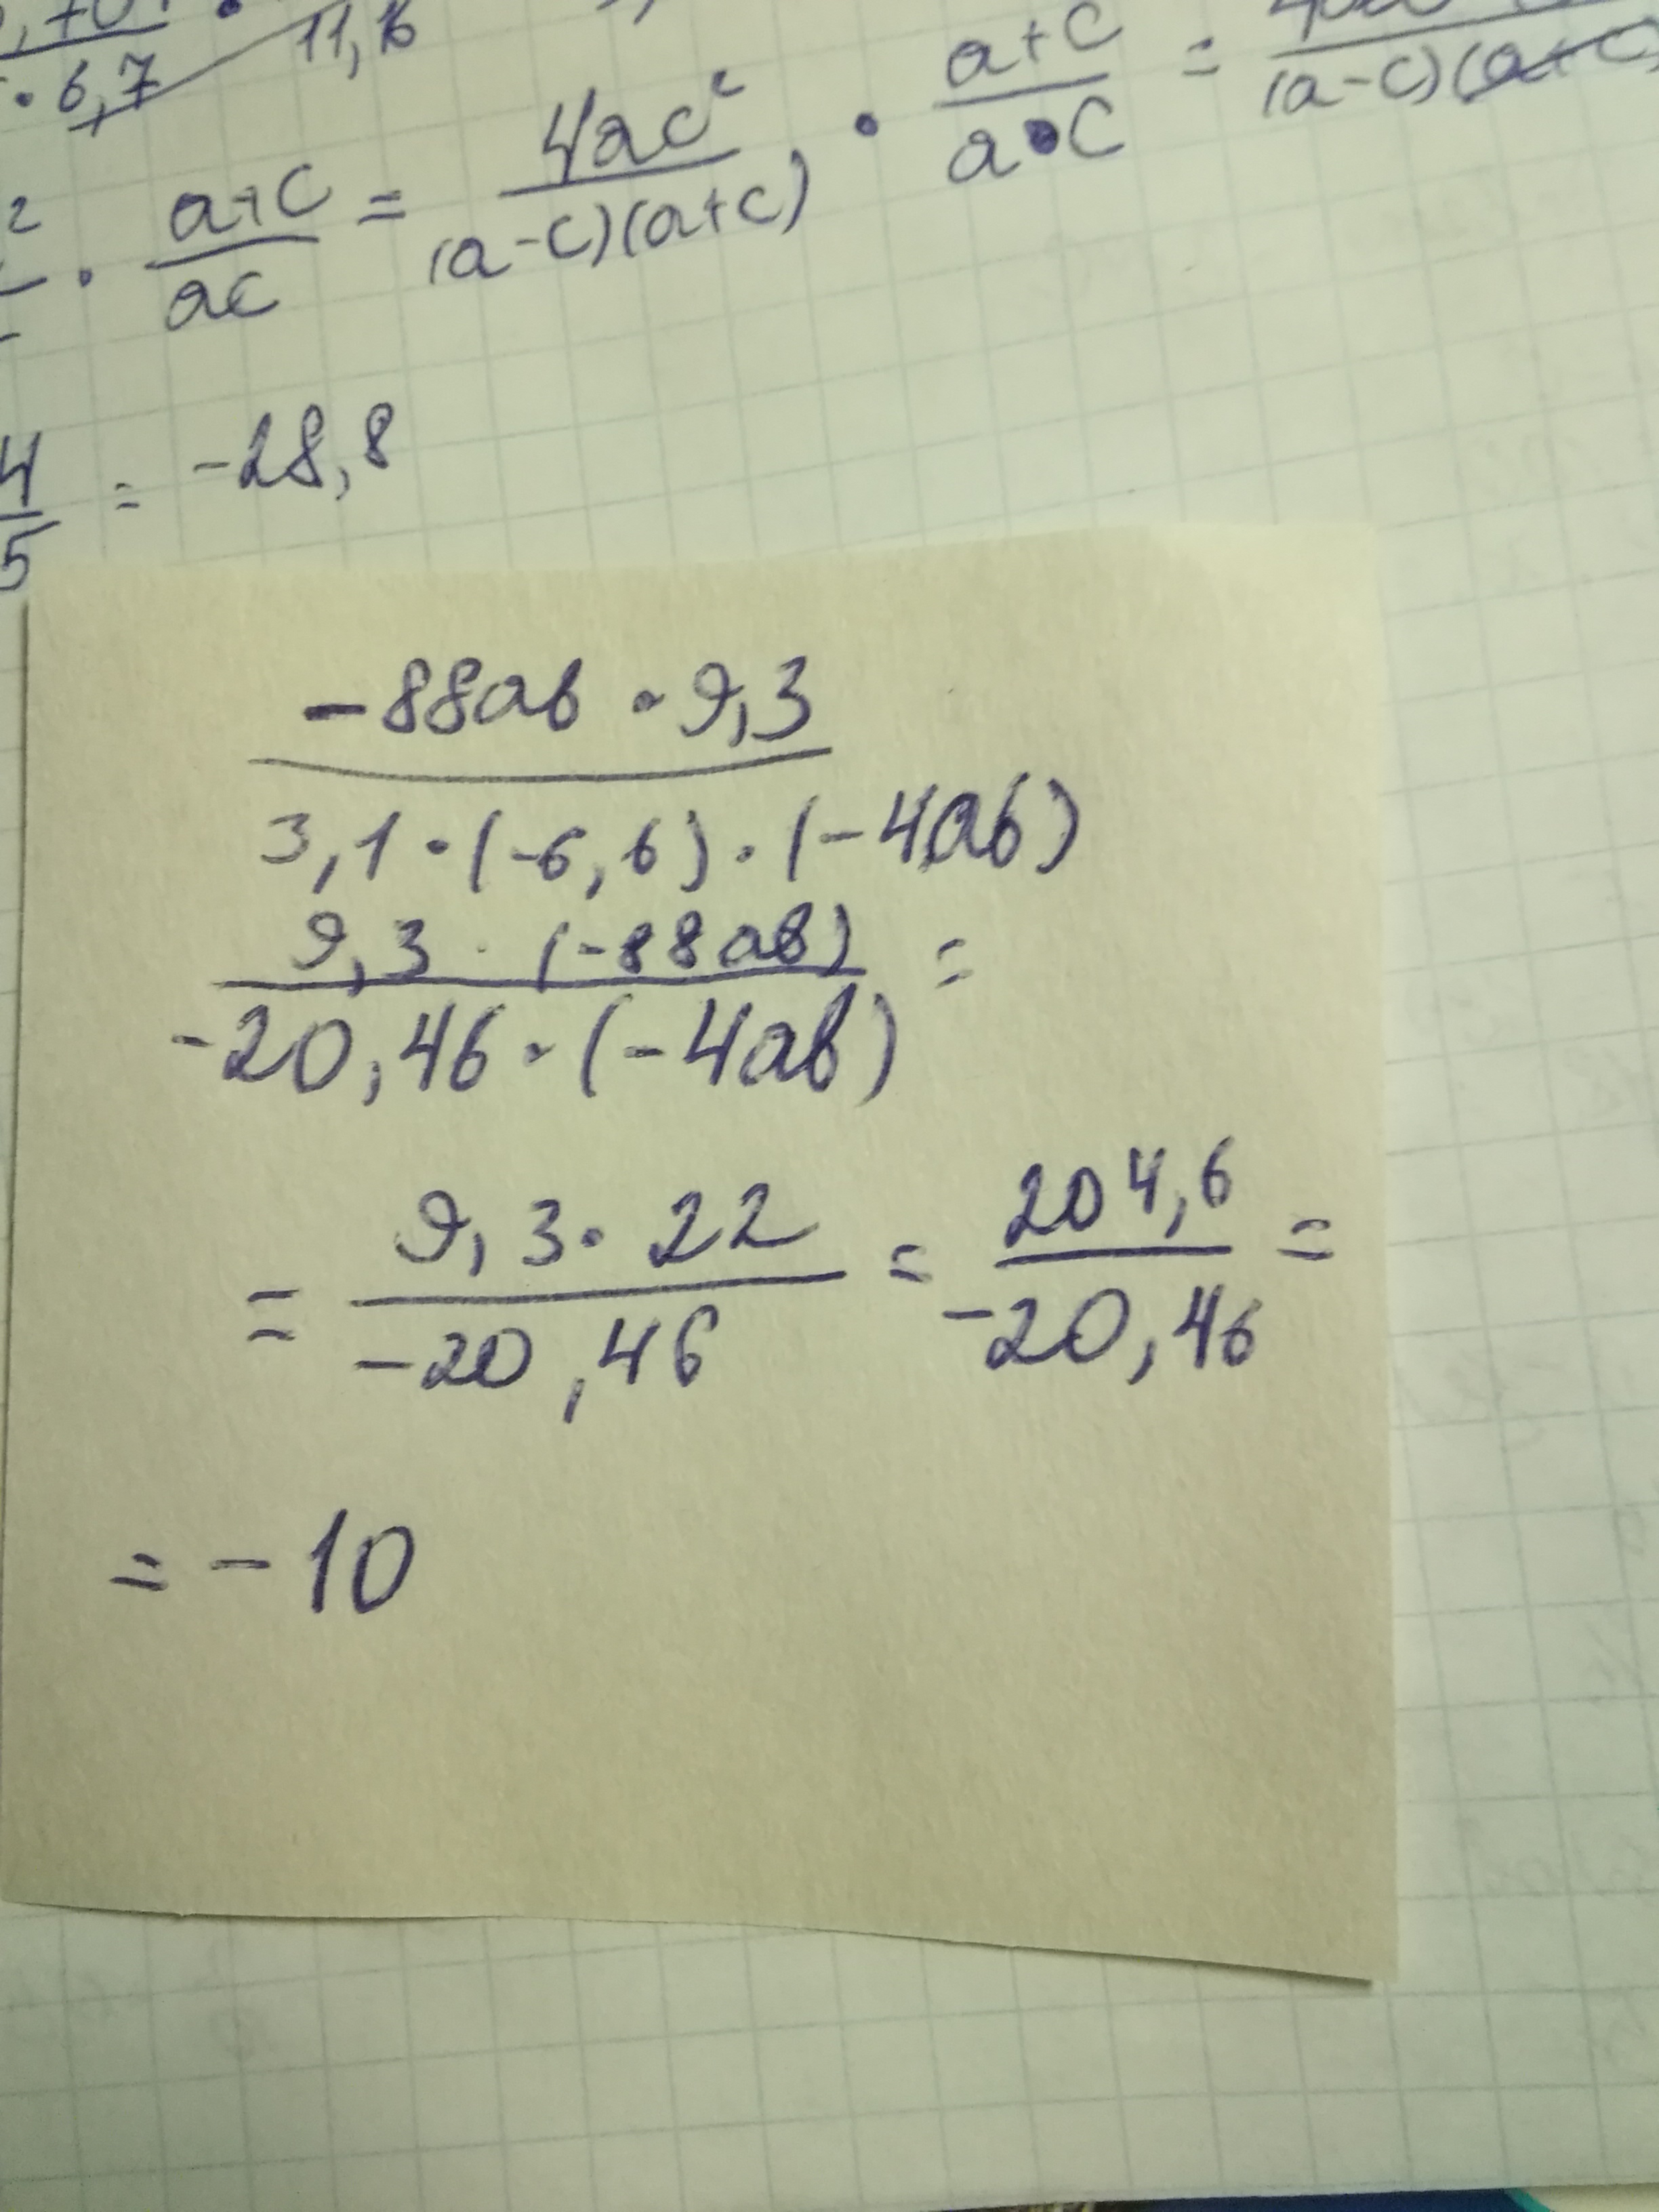 · 6,7 11,16
· a+c/ac = 4ac²/(a-c)(a+c) · a+c/a·c = /(a-c)(a+c)
4/5 = -28,8
-88ab · 9,3
3,1 · (-6,6) · (-4ab)
9,3 · (-88ab) =
-20,46 · (-4ab)
= 9,3 · 22/-20,46 = 204,6/-20,46 =
= -10